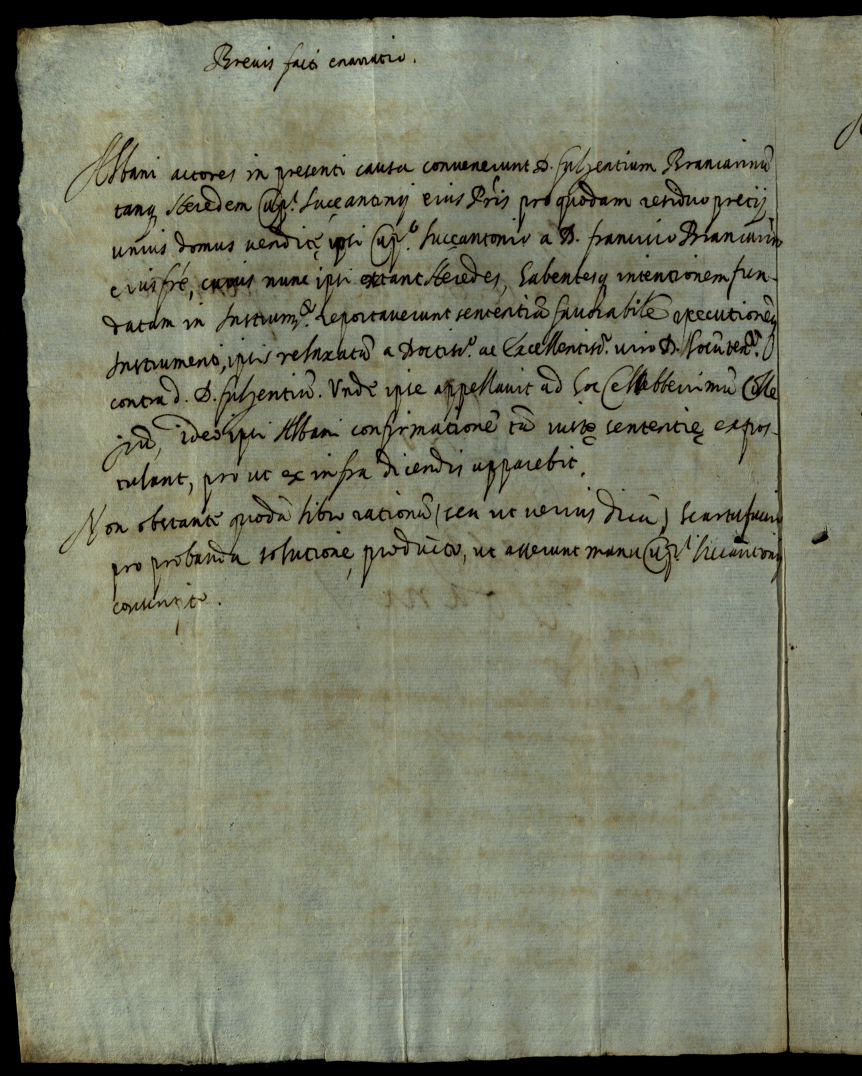 Brevis facti enarratio.
Albani actores in presenti causa convenerunt D. Fulgentium Brancarinũ
tanq̃ Heredem Cap.ⁱ Luçeantonij eius Pr̃is pro quodam residuo pretij
unius domus venditę ipsi Cap.º Lucçantonio a D. Francisco Brancarin
eius fr̃e, cuius nunc ipsi extant Heredes, habentesq intentionem fun-
datam in Instrum.º reportaverunt sententiã favorabilẽ executionẽ
Instrumenti, ipsis relaxatã a Doctis.º ac Excellentis.º viro D. Locũten.ᵉ
contra d. D. Fulgentiũ. Unde ipse appellavit ad hoc Celleberrimũ Colle
giũ, ideo ipsi Albani confirmationẽ tã iustę sententię expos-
tulant, pro ut ex infra dicendis apparebit.
Non obstante quodã libro rationũ (seu ut verius dicã) Scartafacio
pro probanda solutione, producto, ut asserunt manu Cap.ⁱ Luccantonij
conscripto.